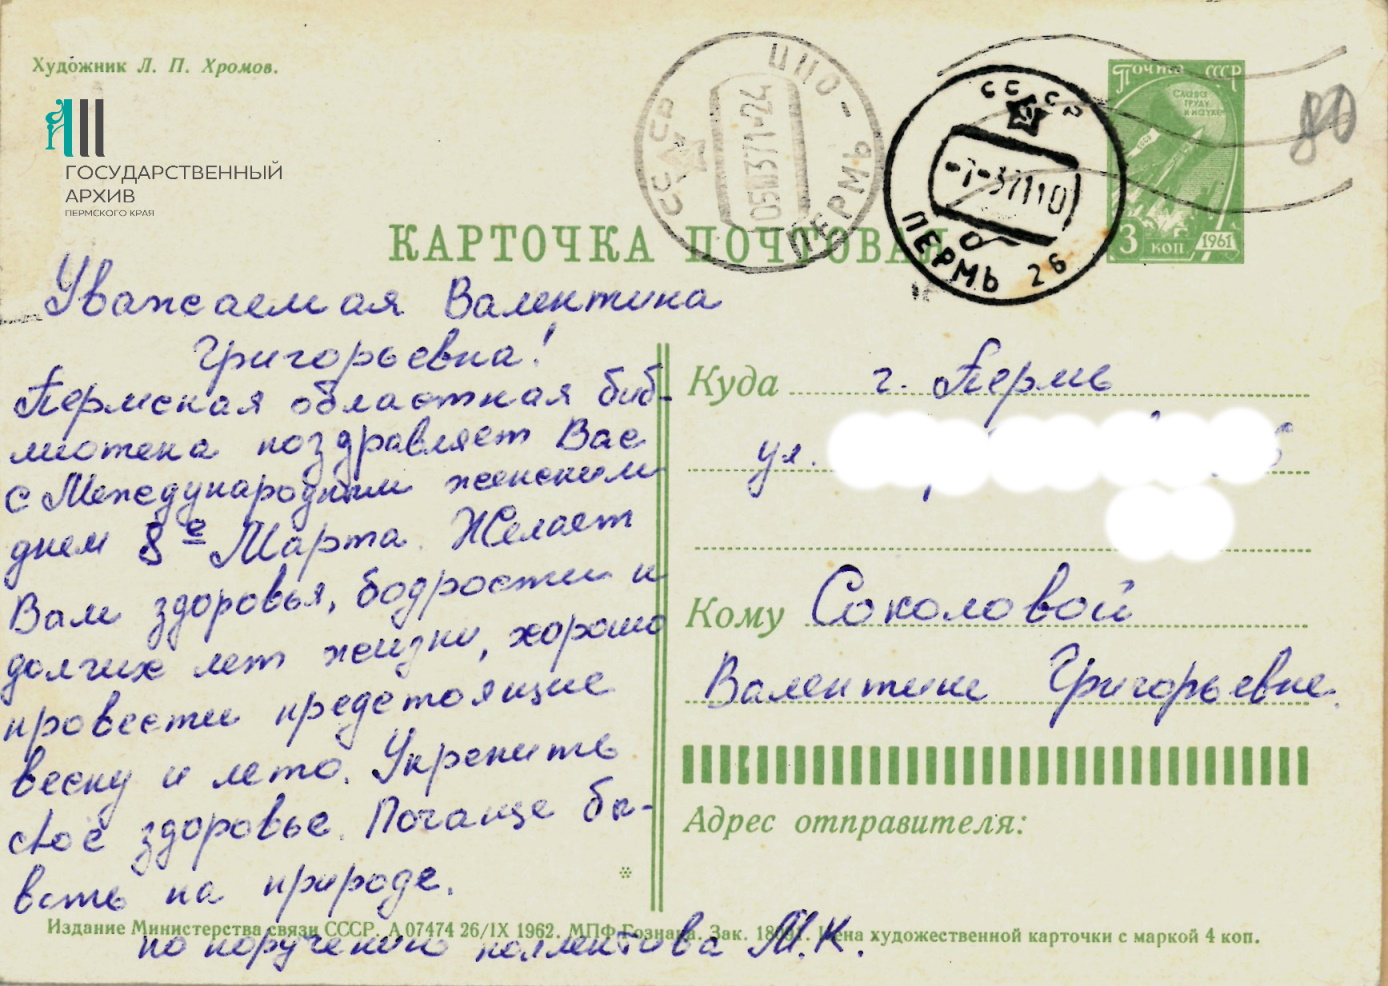 Художник Л. П. Хромов.
ГОСУДАРСТВЕННЫЙ
АРХИВ
ПЕРМСКОГО КРАЯ
СССР
ПЕРМЬ
СССР
-7-37110
ПЕРМЬ 26
Почта СССР
СЛАВА
ТРУДУ
И НАУКЕ
3 коп 1961
80
КАРТОЧКА ПОЧТОВАЯ
Уважаемая Валентина
Григорьевна!
Пермская областная биб-
лиотека поздравляет Вас
с Международным женским
днем 8е Марта. Желает
Вам здоровья, бодрости и
долгих лет жизни, хорошо
провести предстоящие
весну и лето. Укрепить
свое здоровье. Почаще бы-
вать на природе.
по поручению коллектива М.К.
Куда г. Пермь
ул.
Кому Соколовой
Валентине Григорьевне.
Адрес отправителя:
Издание Министерства связи СССР. А 07474 26/IX 1962. МПФ Гознака. Зак. Цена художественной карточки с маркой 4 коп.